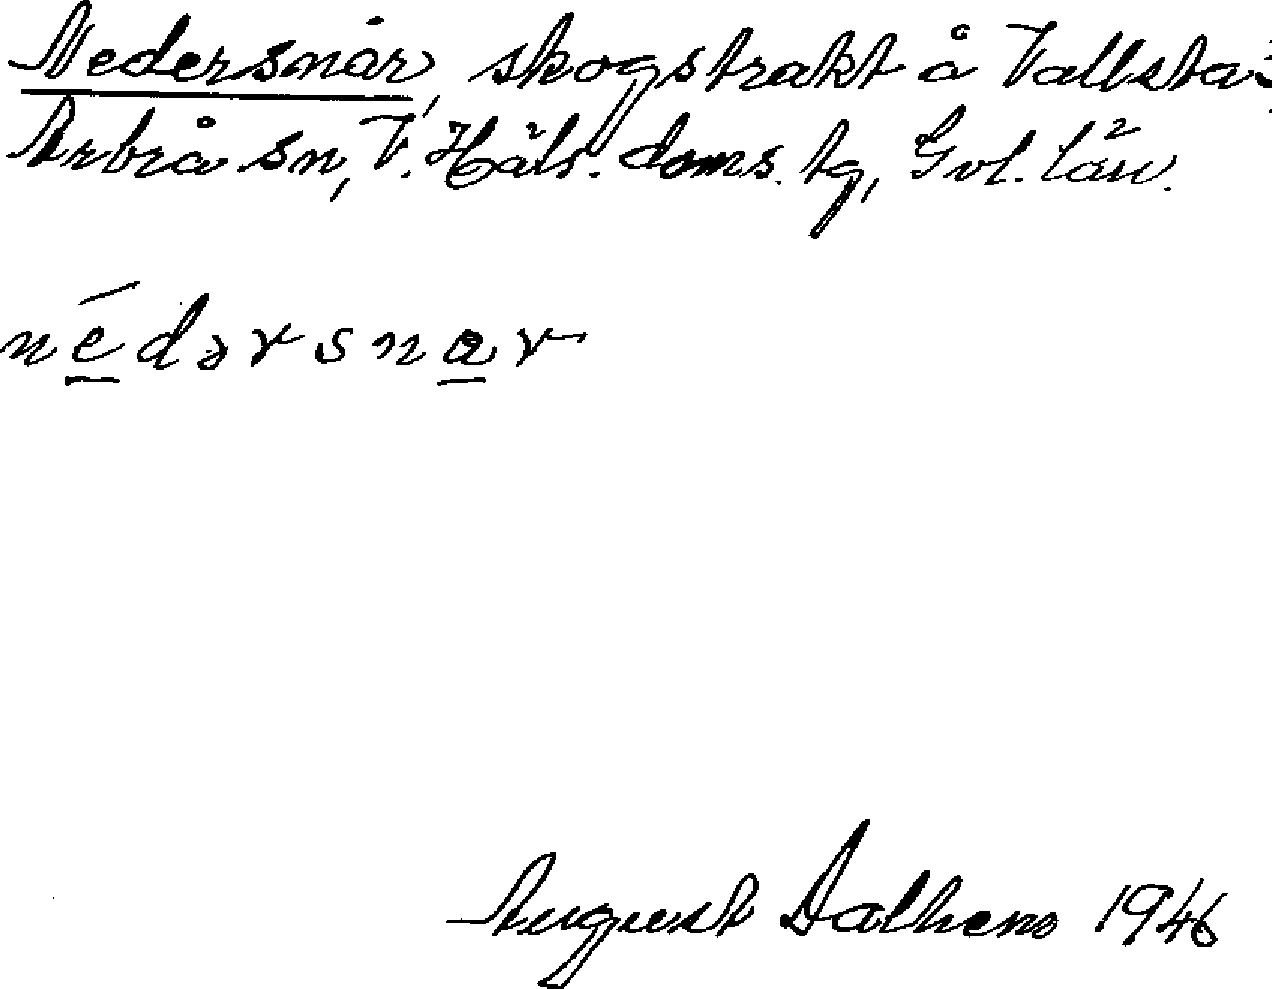 Nedersnår, skogstrakt å Vallsta
Arbrå sn, V. Häls. doms. tg, Gvl. län.
nédərsnar
August Dalhem 1946